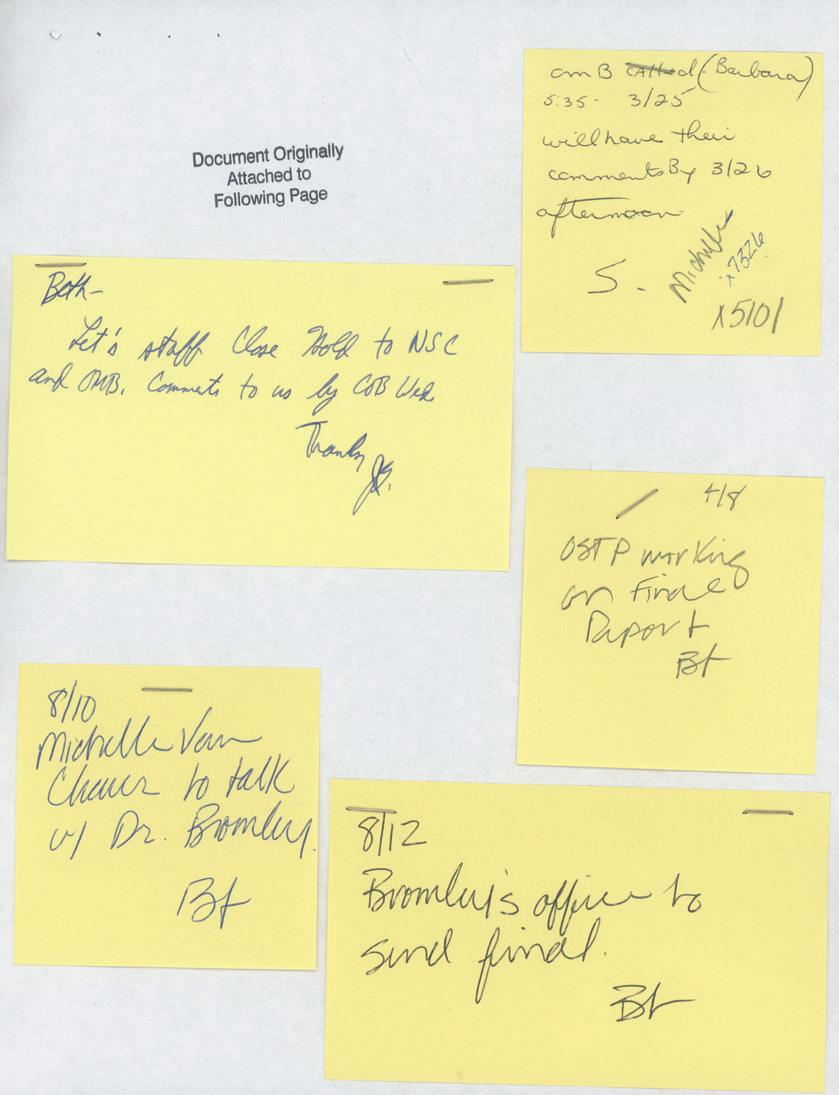 Document Originally
Attached to
Following Page
OMB called (Barbara)
5:35 - 3/25
will have their
comments By 3/26
afternoon
S.
Michelle
x7326
x5101
Beth-
Let's staff Close Hold to NSC
and OMB. Comments to us by COB Wed.
Thanks
4/8
OSTP working
on Final
Report
Bt
8/10
Michelle Van
to talk
w/ Dr. Bromley.
Bt
8/12
Bromley's office to
send final.
Bt